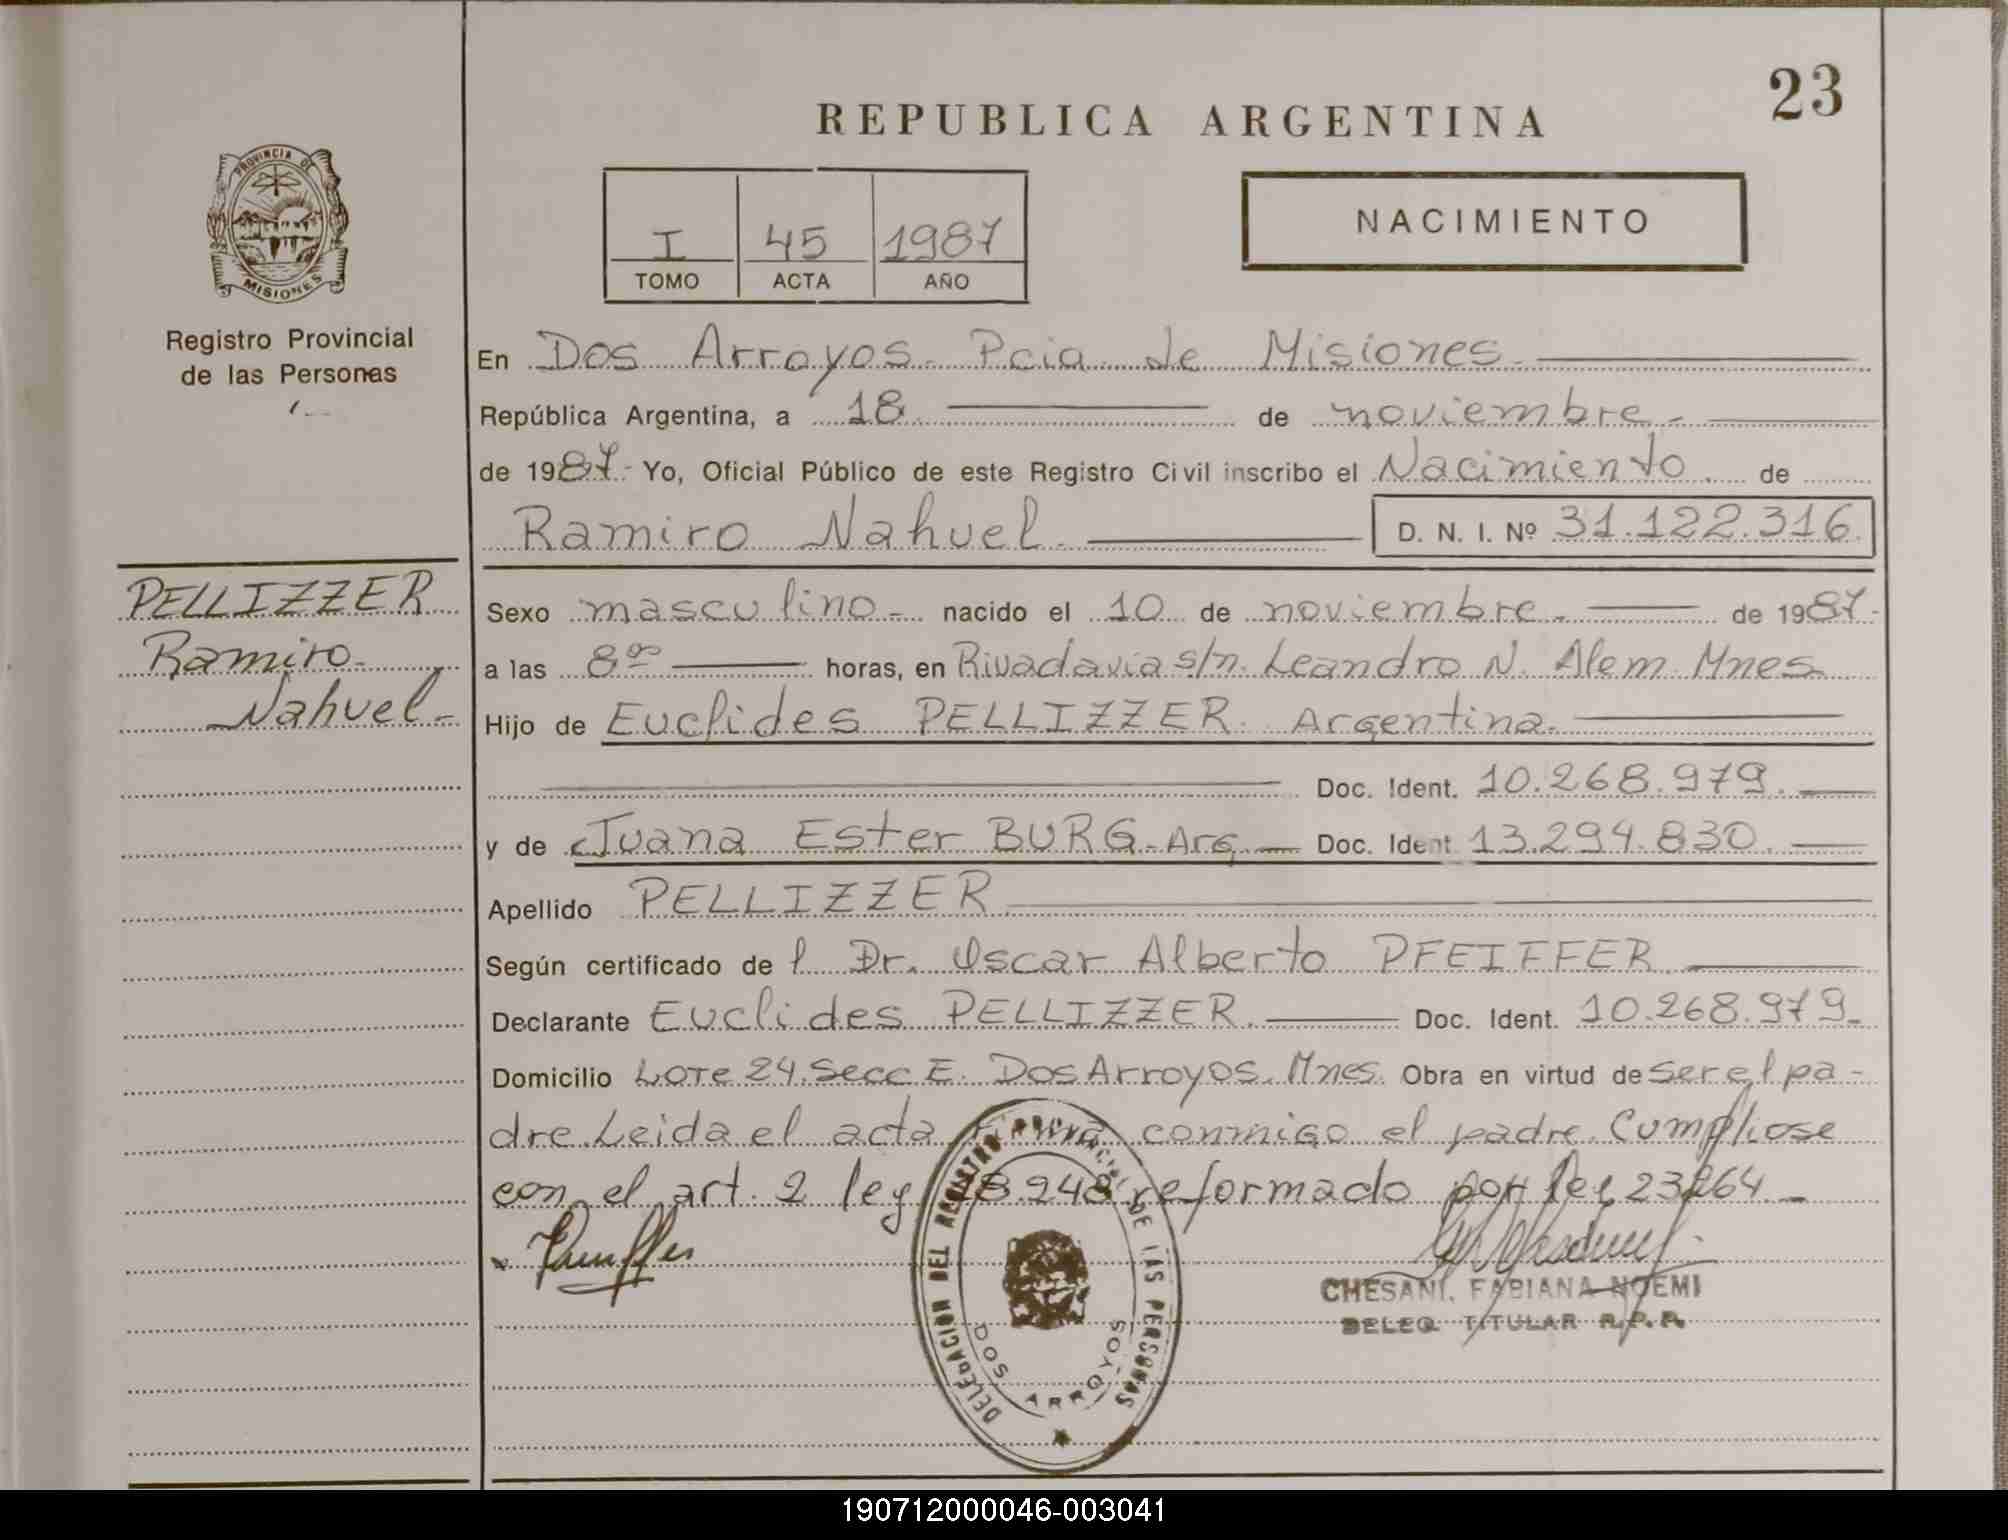 23
REPUBLICA ARGENTINA
PROVINCIA DE
MISIONES
Registro Provincial
de las Personas
I 45 1987
TOMO ACTA AÑO
NACIMIENTO
En Dos Arroyos. Pcia de Misiones.
República Argentina, a 18 de noviembre.-
de 1987.- Yo, Oficial Público de este Registro Civil inscribo el Nacimiento de
Ramiro Nahuel. D. N. I. Nº 31.122.316.
PELLIZZER
Ramiro
Nahuel.-
Sexo masculino.- nacido el 10 de noviembre.- de 1987.-
a las 8 horas, en Rivadavia s/n. Leandro N. Alem. Mnes
Hijo de Euclides PELLIZZER. Argentina.
Doc. Ident. 10.268.979.
y de Juana Ester BURG.- Arg. Doc. Ident 13.294.830.
Apellido PELLIZZER
Según certificado del Dr. Oscar Alberto PFEIFFER.
Declarante Euclides PELLIZZER. Doc. Ident. 10.268.979.-
Domicilio Lote 24. Secc E. Dos Arroyos. Mnes. Obra en virtud de ser el pa-
dre. Leida el acta firma conmigo el padre. Cumpliose
con el art. 2 ley 18.248 reformado por ley 23264.-
DELEGACION DEL REGISTRO PROVINCIAL DE LAS PERSONAS
DOS ARROYOS
CHESANI, FABIANA NOEMI
DELEG. TITULAR R.P.P.
190712000046-003041